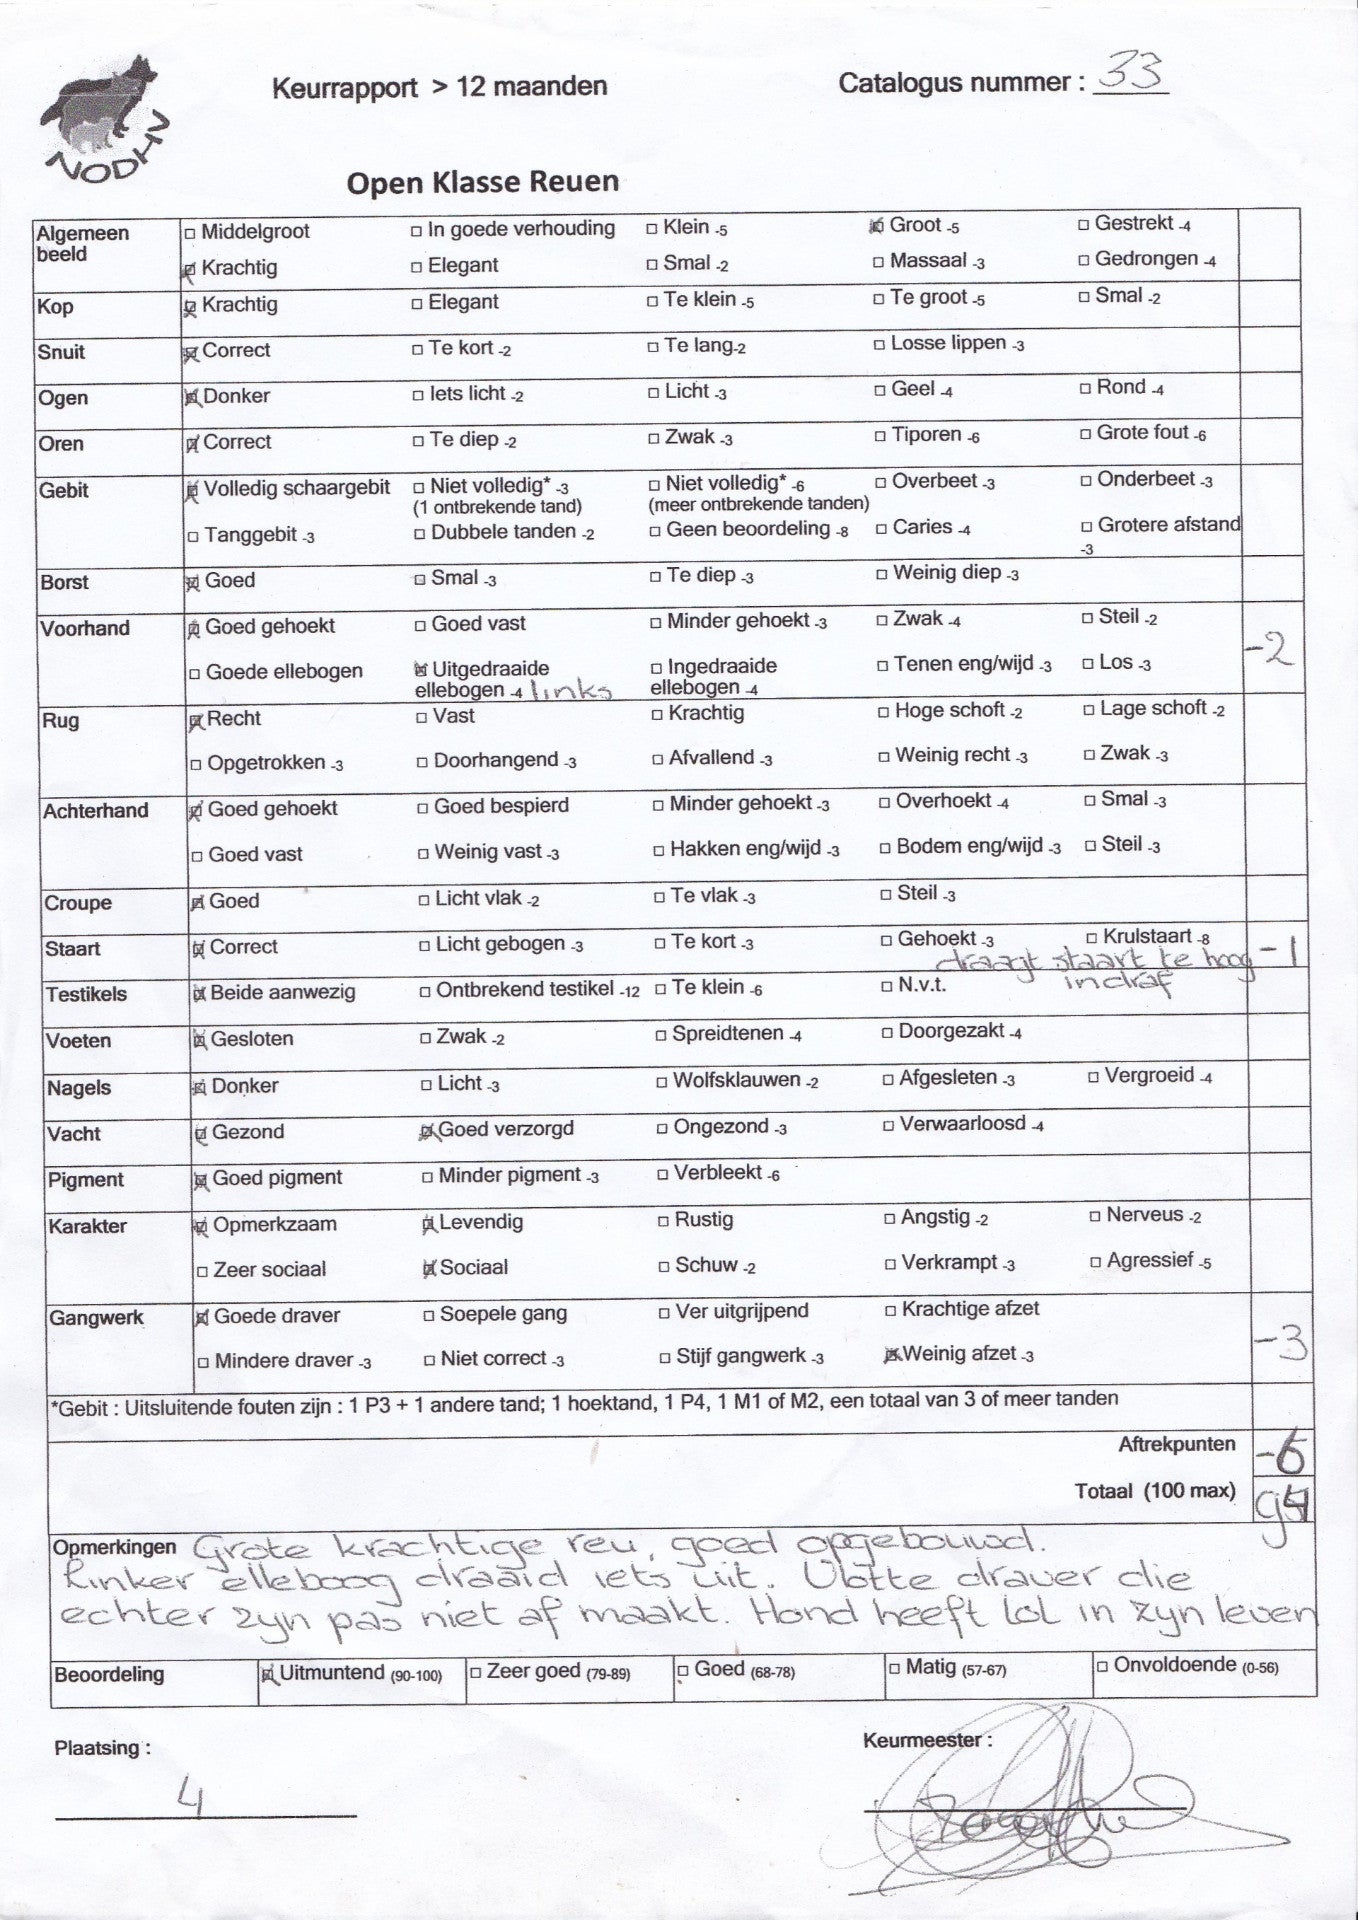 NODHV
Keurrapport > 12 maanden
Catalogus nummer : 33
Open Klasse Reuen
Algemeen beeld Middelgroot In goede verhouding Klein -5 Groot -5 Gestrekt -4
Krachtig Elegant Smal -2 Massaal -3 Gedrongen -4
Kop Krachtig Elegant Te klein -5 Te groot -5 Smal -2
Snuit Correct Te kort -2 Te lang-2 Losse lippen -3
Ogen Donker Iets licht -2 Licht -3 Geel -4 Rond -4
Oren Correct Te diep -2 Zwak -3 Tiporen -6 Grote fout -6
Gebit Volledig schaargebit Niet volledig* -3 Niet volledig* -6 Overbeet -3 Onderbeet -3
(1 ontbrekende tand) (meer ontbrekende tanden)
Tanggebit -3 Dubbele tanden -2 Geen beoordeling -8 Caries -4 Grotere afstand
-3
Borst Goed Smal -3 Te diep -3 Weinig diep -3
Voorhand Goed gehoekt Goed vast Minder gehoekt -3 Zwak -4 Steil -2
-2
Goede ellebogen Uitgedraaide Ingedraaide Tenen eng/wijd -3 Los -3
ellebogen -4 links ellebogen -4
Rug Recht Vast Krachtig Hoge schoft -2 Lage schoft -2
Opgetrokken -3 Doorhangend -3 Afvallend -3 Weinig recht -3 Zwak -3
Achterhand Goed gehoekt Goed bespierd Minder gehoekt -3 Overhoekt -4 Smal -3
Goed vast Weinig vast -3 Hakken eng/wijd -3 Bodem eng/wijd -3 Steil -3
Croupe Goed Licht vlak -2 Te vlak -3 Steil -3
Staart Correct Licht gebogen -3 Te kort -3 Gehoekt -3 Krulstaart -8
draagt staart te hoog -1
Testikels Beide aanwezig Ontbrekend testikel -12 Te klein -6 N.v.t. in draf
Voeten Gesloten Zwak -2 Spreidtenen -4 Doorgezakt -4
Nagels Donker Licht -3 Wolfsklauwen -2 Afgesleten -3 Vergroeid -4
Vacht Gezond Goed verzorgd Ongezond -3 Verwaarloosd -4
Pigment Goed pigment Minder pigment -3 Verbleekt -6
Karakter Opmerkzaam Levendig Rustig Angstig -2 Nerveus -2
Zeer sociaal Sociaal Schuw -2 Verkrampt -3 Agressief -5
Gangwerk Goede draver Soepele gang Ver uitgrijpend Krachtige afzet
-3
Mindere draver -3 Niet correct -3 Stijf gangwerk -3 Weinig afzet -3
*Gebit : Uitsluitende fouten zijn : 1 P3 + 1 andere tand; 1 hoektand, 1 P4, 1 M1 of M2, een totaal van 3 of meer tanden
Aftrekpunten -6
Totaal (100 max) 94
Opmerkingen Grote krachtige reu, goed opgebouwd.
Linker elleboog draaid iets uit. Vlotte draver die
echter zyn pas niet af maakt. Hond heeft lol in zyn leven
Beoordeling Uitmuntend (90-100) Zeer goed (79-89) Goed (68-78) Matig (57-67) Onvoldoende (0-56)
Plaatsing :
Keurmeester :
4